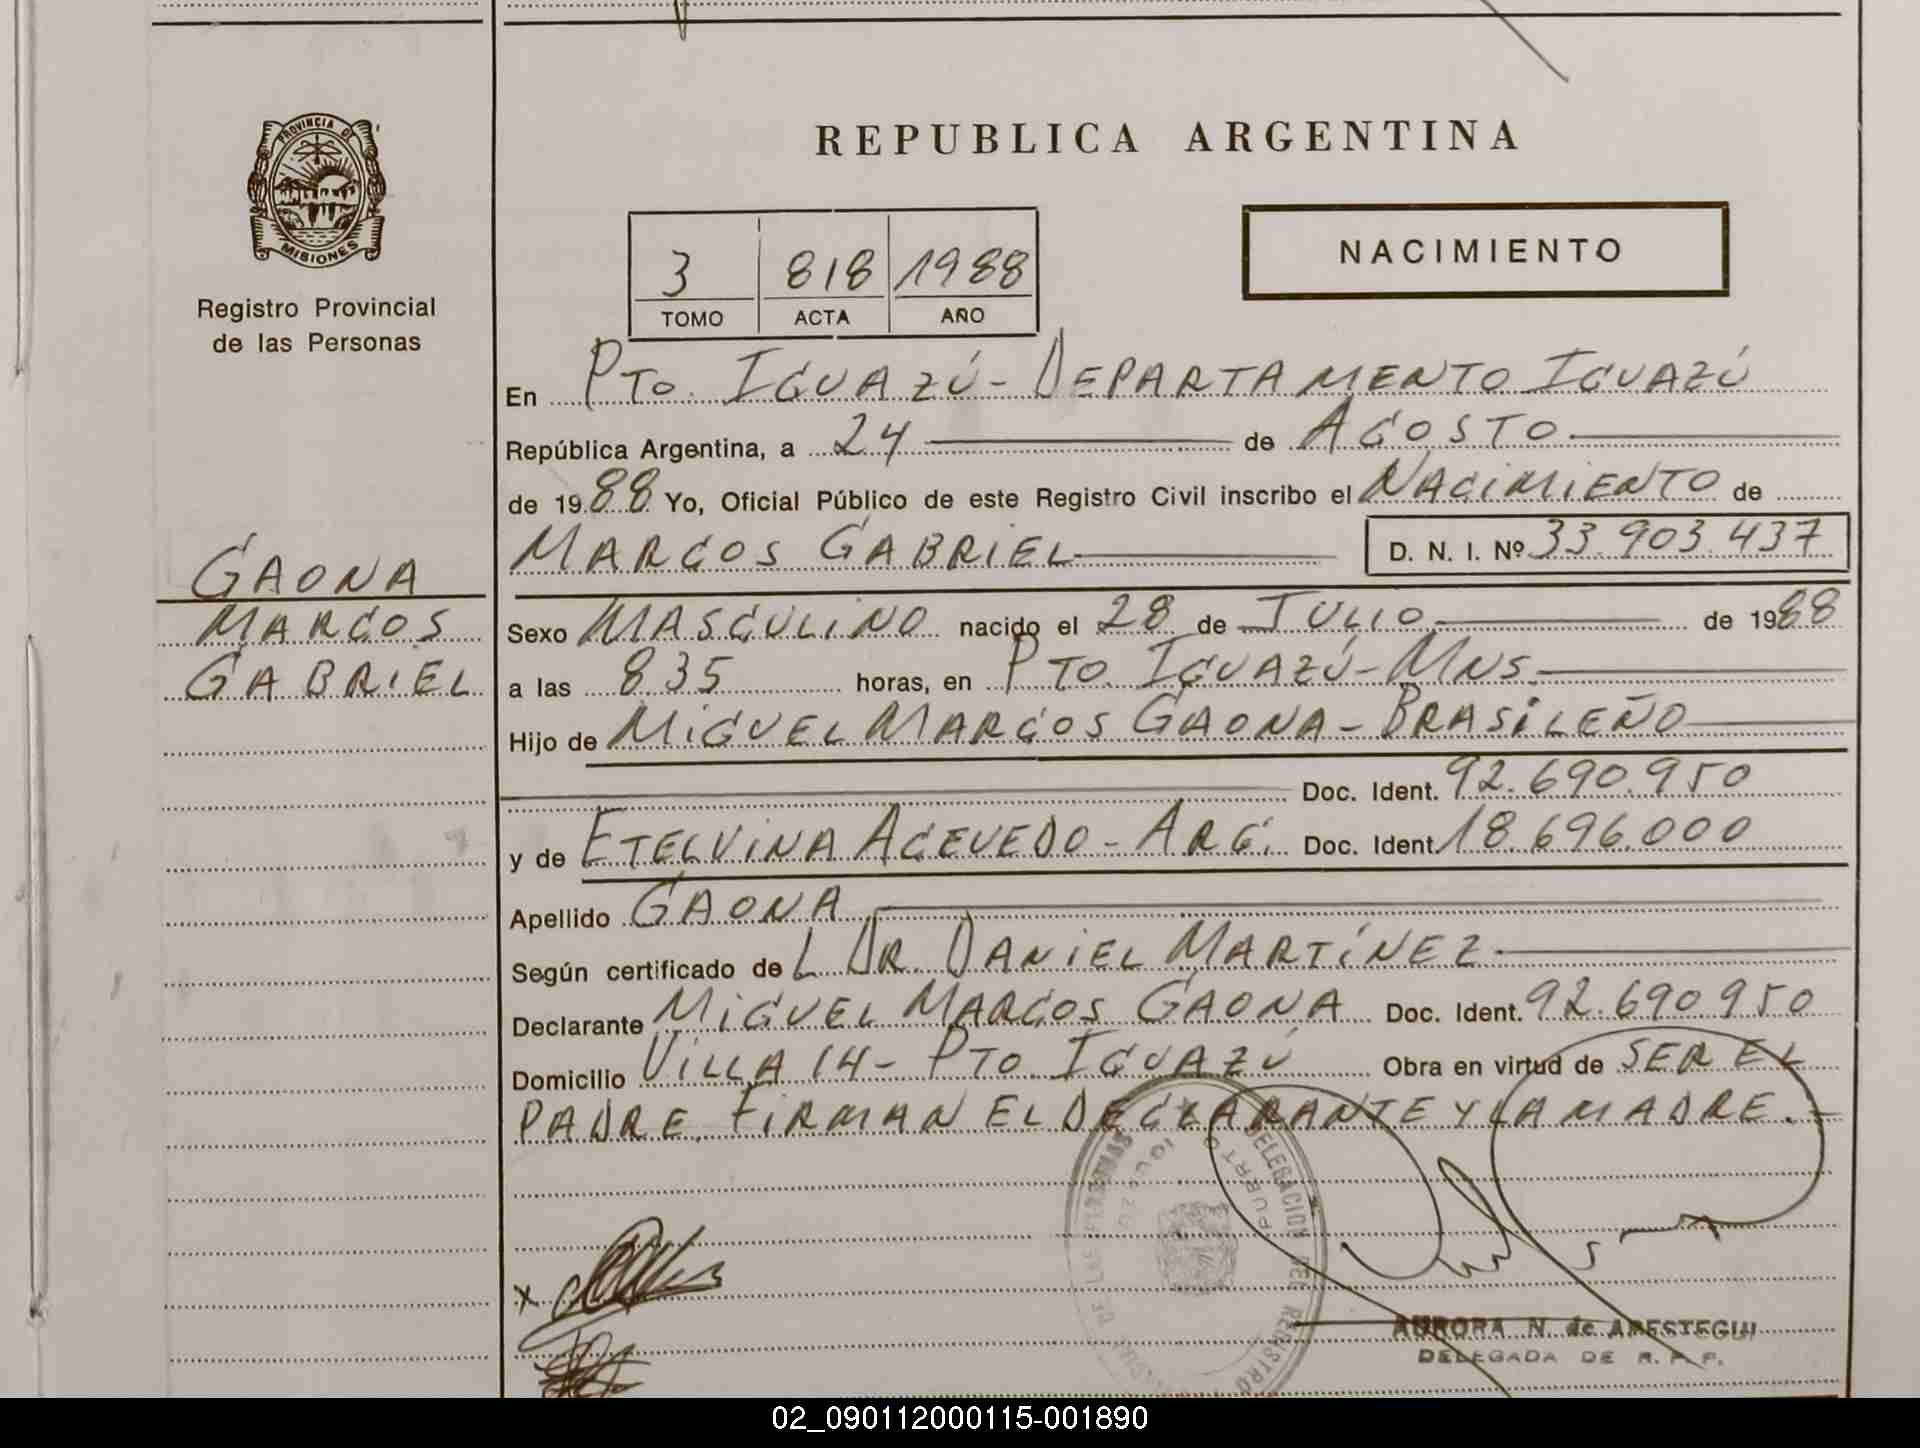 PROVINCIA DE
MISIONES
Registro Provincial
de las Personas
GAONA
MARCOS
GABRIEL
REPUBLICA ARGENTINA
3 818 1988
TOMO ACTA AÑO
NACIMIENTO
En PTO. IGUAZÚ - DEPARTAMENTO IGUAZÚ
República Argentina, a 24 de AGOSTO
de 1988 Yo, Oficial Público de este Registro Civil inscribo el NACIMIENTO de
MARCOS GABRIEL D. N. I. Nº 33.903.437
Sexo MASCULINO nacido el 28 de JULIO de 1988
a las 835 horas, en PTO. IGUAZÚ - MNS.
Hijo de MIGUEL MARCOS GAONA - BRASILEÑO
Doc. Ident. 92.690.950
y de ETELVINA ACEVEDO - ARG. Doc. Ident. 18.696.000
Apellido GAONA
Según certificado de L DR. DANIEL MARTÍNEZ
Declarante MIGUEL MARCOS GAONA Doc. Ident. 92.690950
Domicilio VILLA 14 - PTO. IGUAZÚ Obra en virtud de SER EL
PADRE. FIRMAN EL DECLARANTE Y LA MADRE.-
DELEGACION DEL REGISTRO DE LAS PERSONAS
PUERTO IGUAZU
X
AURORA N. de ARESTEGUI
DELEGADA DE R. P. P.
02_090112000115-001890